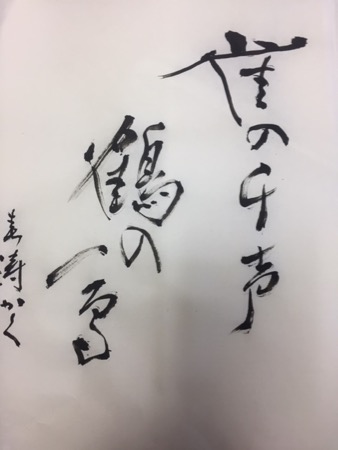 雀の千声
鶴の一声
涛かく